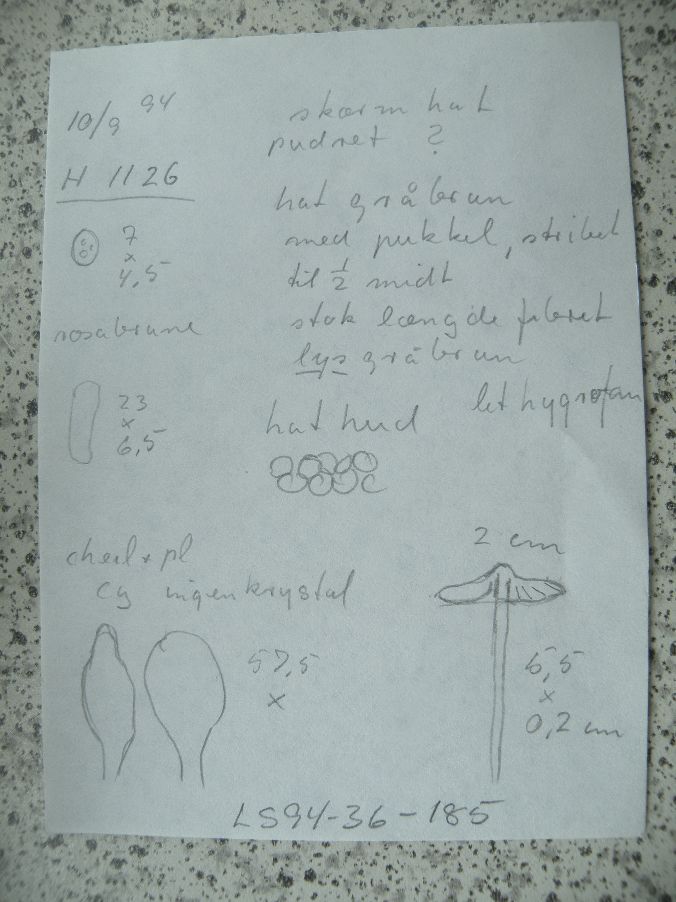 10/9 94
H 1126
7
x
4,5
rosabrune
23
x
6,5
skærm hat
pudret ?
hat gråbrun
med pukkel, stribet
til 1/2 midt
stok længde fibret
lys gråbrun
let hygrofan
hat hud
cheil + pl
cy ingen krystal
57,5
x
2 cm
5,5
x
0,2 cm
LS94-36-185